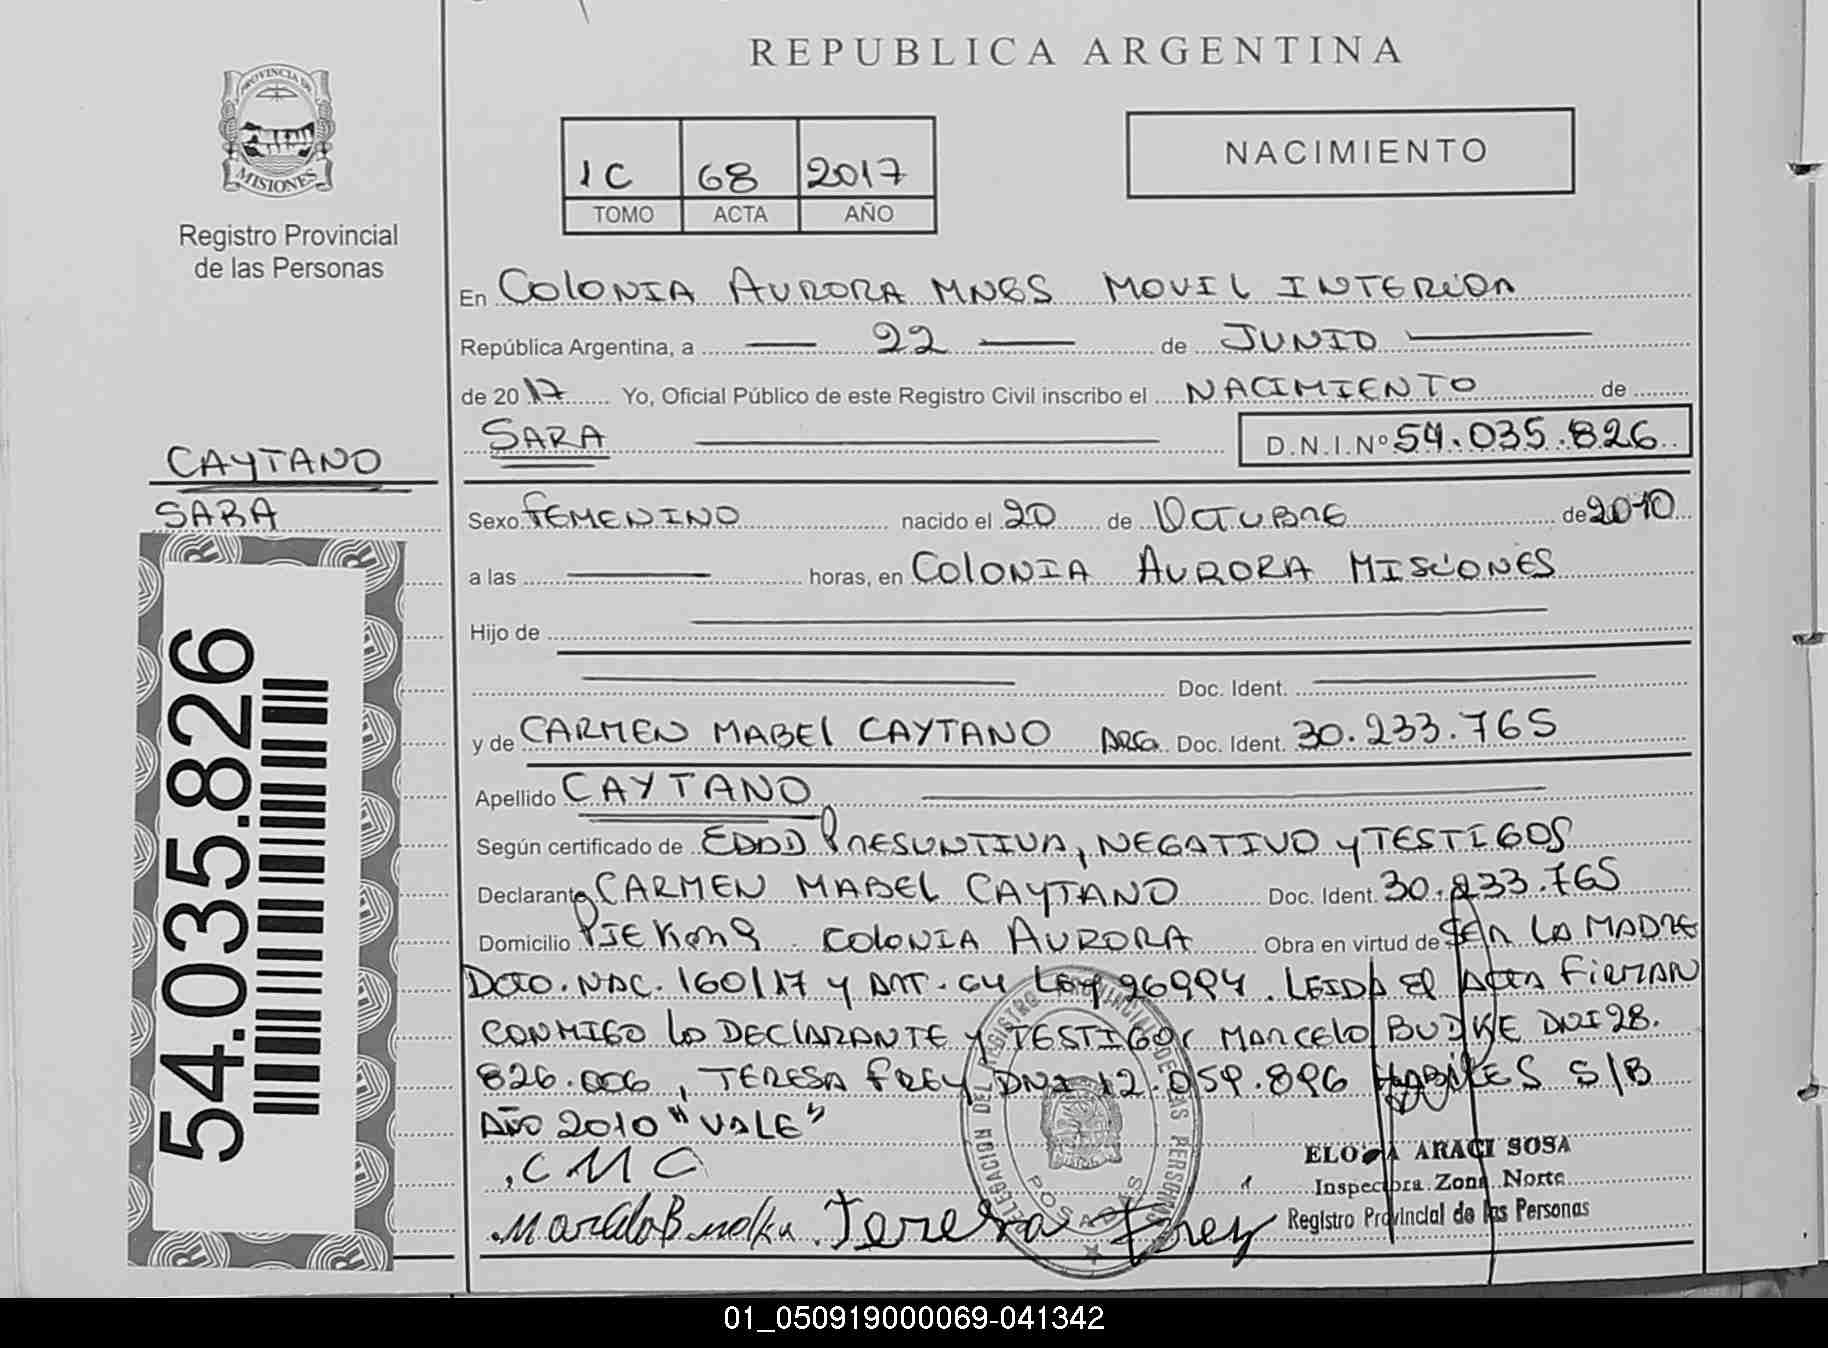 REPUBLICA ARGENTINA
PROVINCIA DE
MISIONES
Registro Provincial
de las Personas
1C 68 2017
TOMO ACTA AÑO
NACIMIENTO
En COLONIA AURORA MNES MOVIL INTERIOR
República Argentina, a 22 de JUNIO
de 2017 Yo, Oficial Público de este Registro Civil inscribo el NACIMIENTO de
SARA D.N.I.Nº 54.035.826
CAYTANO
SARA
Sexo FEMENINO nacido el 20 de OCTUBRE de 2010
a las horas, en COLONIA AURORA MISIONES
Hijo de
Doc. Ident.
y de CARMEN MABEL CAYTANO ARG. Doc. Ident. 30.233.765
Apellido CAYTANO
Según certificado de EDAD PRESUNTIVA, NEGATIVO Y TESTIGOS
Declarante CARMEN MABEL CAYTANO Doc. Ident. 30.233.765
Domicilio COLONIA AURORA Obra en virtud de SER LA MADRE
DCTO. NAC. 160/17 Y ART. 64 LEY 26994. LEIDA EL ACTA FIRMAN
CONMIGO LA DECLARANTE Y TESTIGOS MARCELO BUDKE DNI 28.
826.006, TERESA FREY DNI 12.059.896 HABILES S/B
AÑO 2010 "VALE"
CMC
Teresa Frey
DELEGACIÓN DEL REGISTRO PROVINCIAL DE LAS PERSONAS
POSADAS
ELOISA ARACI SOSA
Inspectora Zona Norte
Registro Provincial de las Personas
54.035.826
01_050919000069-041342